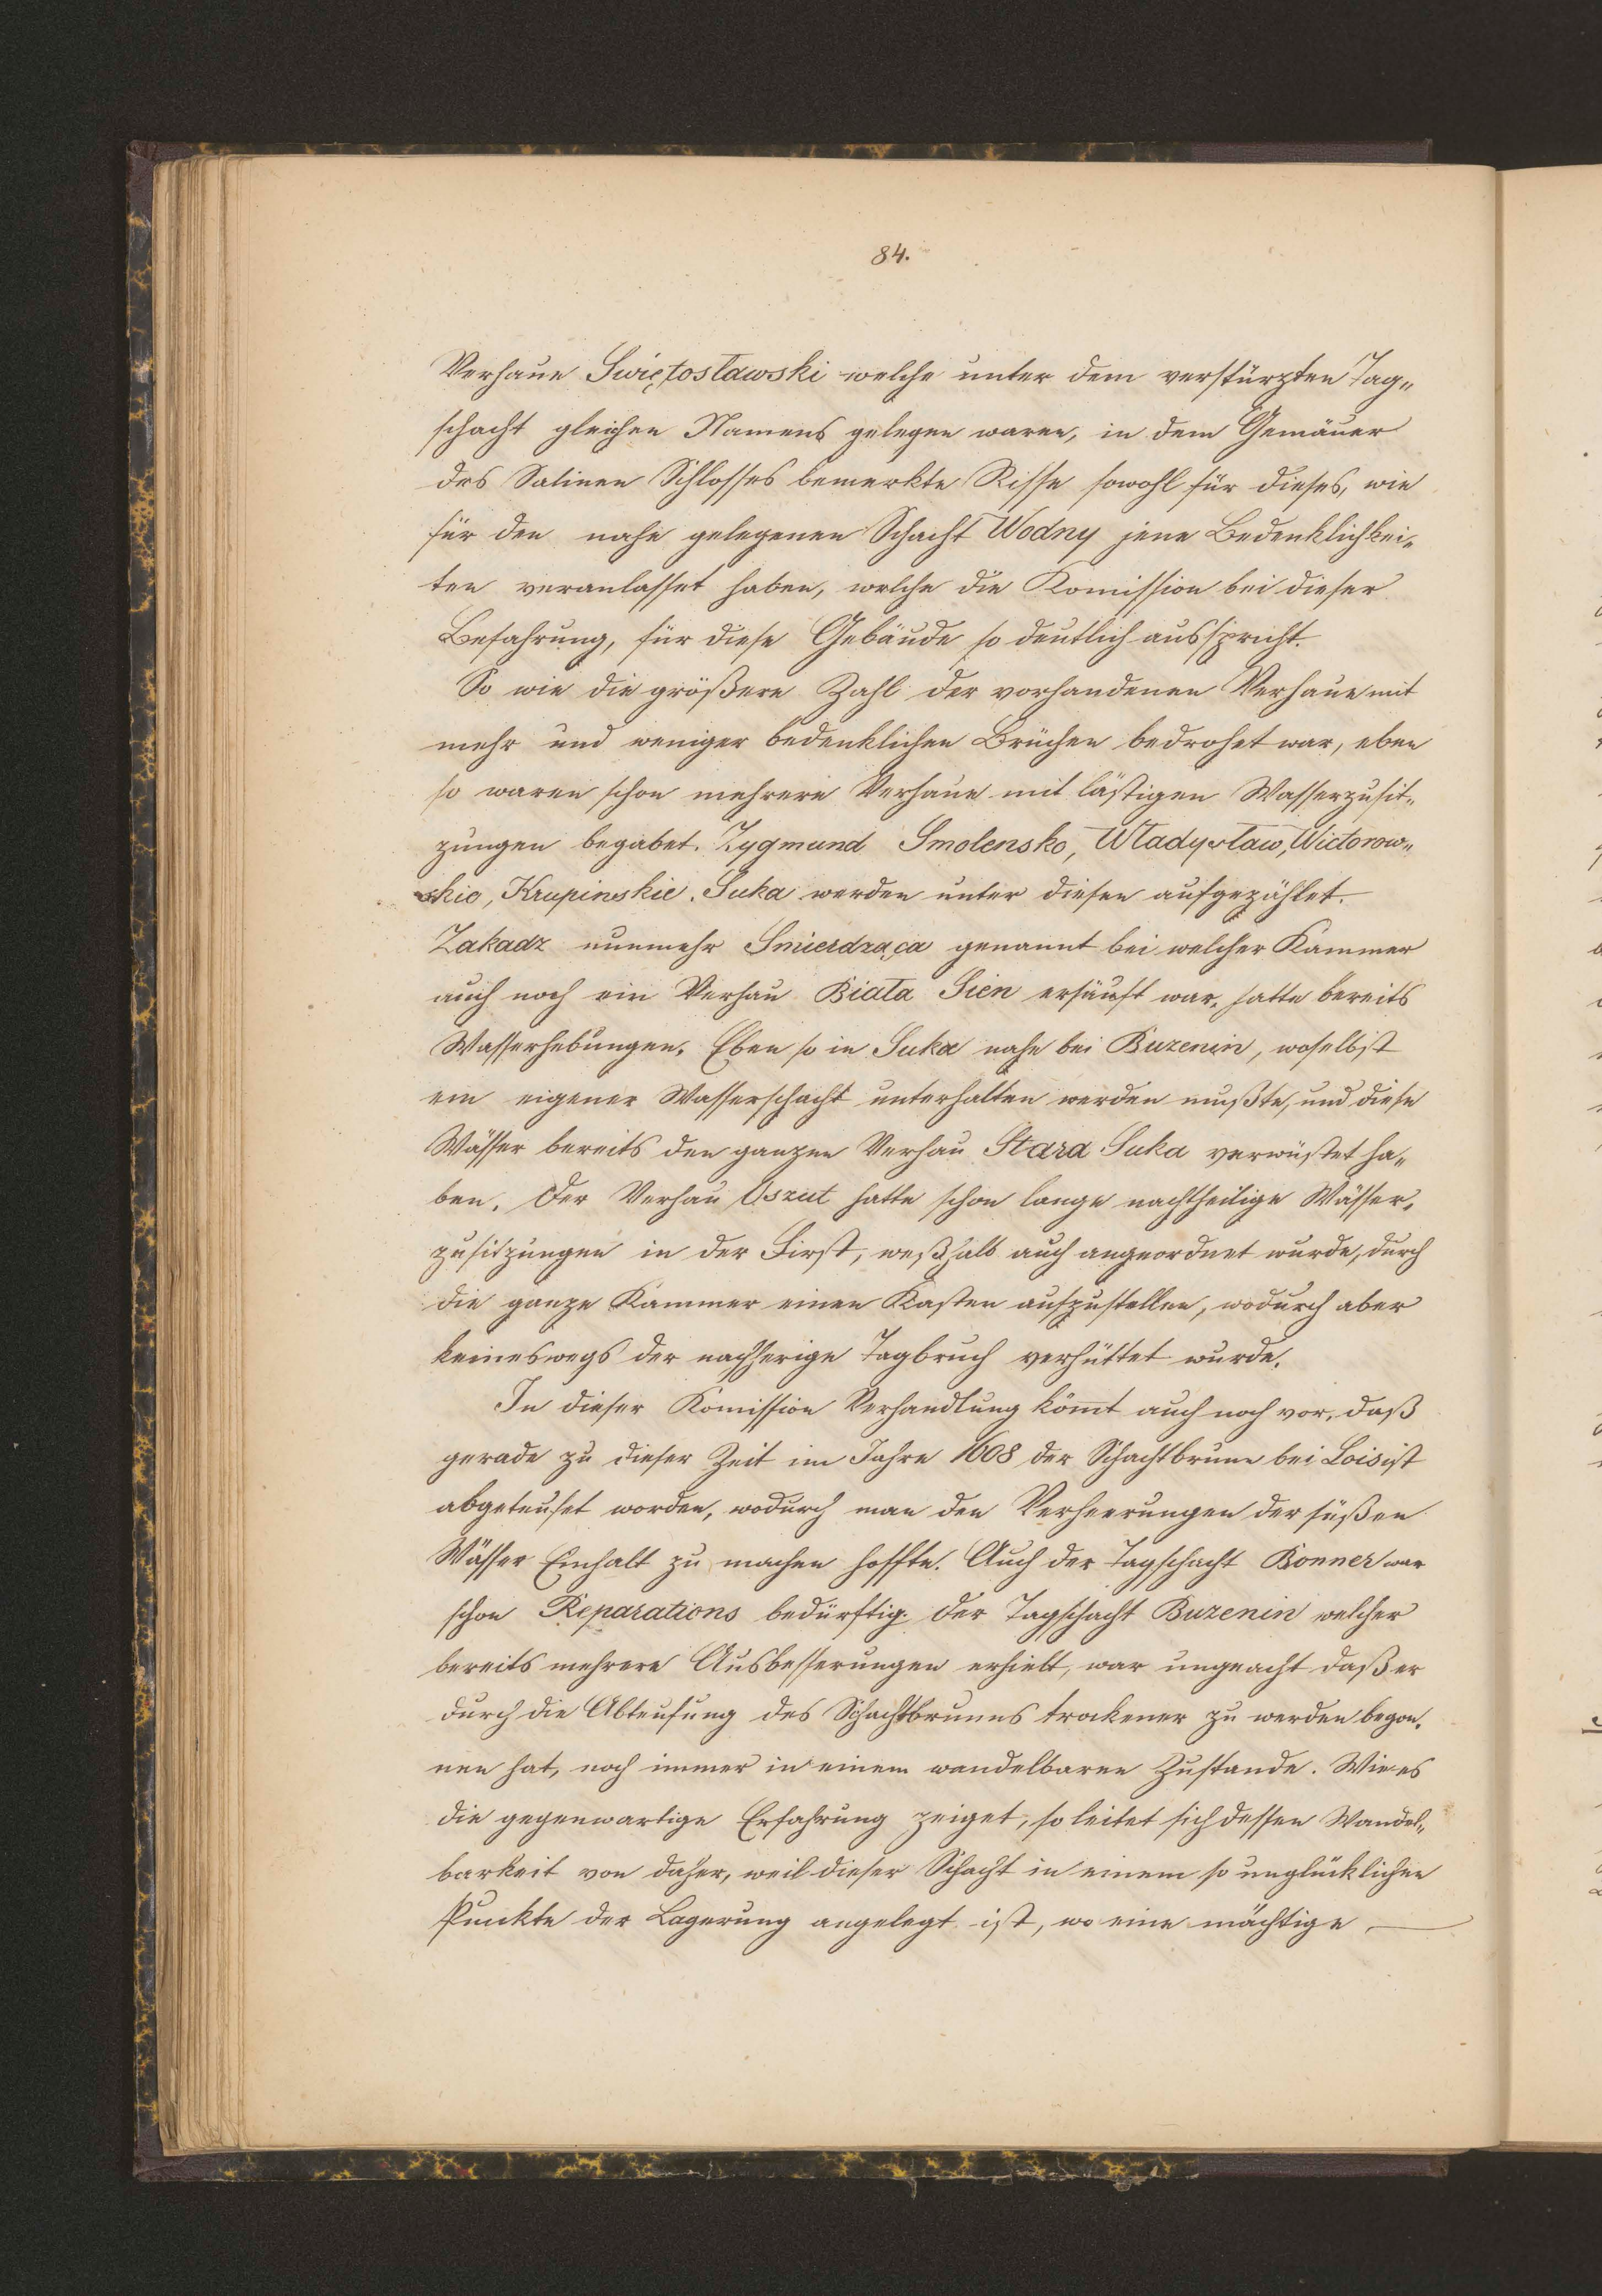 84.
Verhaue Swiętosławski welche unter dem verstürzten Tag„
schacht gleichen Namens gelegen waren, in dem Gemäuer
des Salinen Schlosses bemerkte Risse sowohl für dieses, wie
für den nahe gelegenen Schacht Wodny jene Bedenklichkei„
ten veranlasset haben, welche die Komission bei dieser
Befahrung, für diese Gebäude so deutlich ausspricht.
So wie die größere Zahl der vorhandenen Verhaue mit
mehr und weniger bedenklichen Brüchen bedrohet war, eben
so waren schon mehrere Verhaue mit lästigen Wasserzusit„
zungen begabet. Zygmund Smolensko, Władysław, Wictorow„
skio, Krupinskie. Suka werden unter diesen aufgezählet.
Zakadz nunmehr Smierdząca genannt bei welcher Kammer
auch noch ein Verhau Biała Sien ersäuft war, hatte bereits
Wasserhebungen. Eben so in Suka nahe bei Buzenin, woselbst
ein eigener Wasserschacht unterhalten werden mußte, und diese
Wässer bereits den ganzen Verhau Stara Suka verwüstet ha„
ben. Der Verhau Oszut hatte schon lange nachtheilige Wässer„
zusitzungen in der First, weßhalb auch angeordnet wurde, durch
die ganze Kammer einen Kasten aufzustellen, wodurch aber
keineswegs der nachherige Tagbruch verhüttet wurde.
In dieser Komission Verhandlung kömt auch noch vor, daß
gerade zu dieser Zeit im Jahre 1608 der Schachtbrunn bei Lois ist
abgeteufet worden, wodurch man den Verheerungen der süßen
Wässer Einhalt zu machen hoffte. Auch der Tagschacht Bonner war
schon Reparations bedürftig. Der Tagschacht Buzenin welcher
bereits mehrere Ausbesserungen erhielt, war ungeacht daß er
durch die Abteufung des Schachtbrunns trockener zu werden begon„
nen hat, noch immer in einem wandelbaren Zustande. Wie es
die gegenwartige Erfahrung zeiget, so leitet sich dessen Wandel„
barkeit von daher, weil dieser Schacht in einem so unglücklichen
Punkte der Lagerung angelegt ist, wo eine mächtige